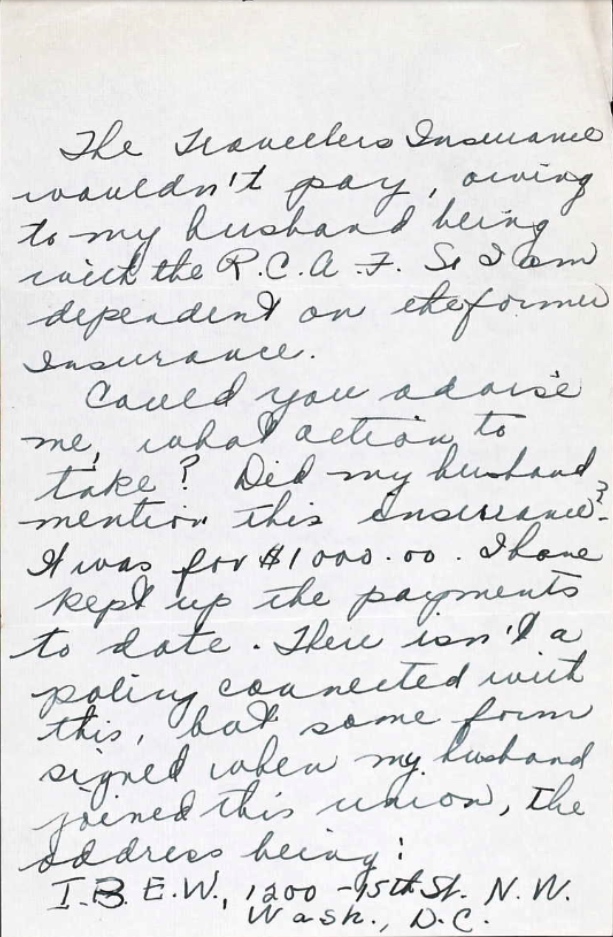 The Travellers Insurance
wouldn't pay, owing
to my husband being
with the R.C.A.F. So I am
dependent on the former
Insurance.
Could you advise
me, what action to
take? Did my husband
mention this insurance?
It was for $1000.00. I have
kept up the payments
to date. There isn't a
policy connected with
this, but some form
signed when my husband
joined this union, the
address being:
I.B.E.W., 1200 - 15th St. N.W.
Wash., D.C.